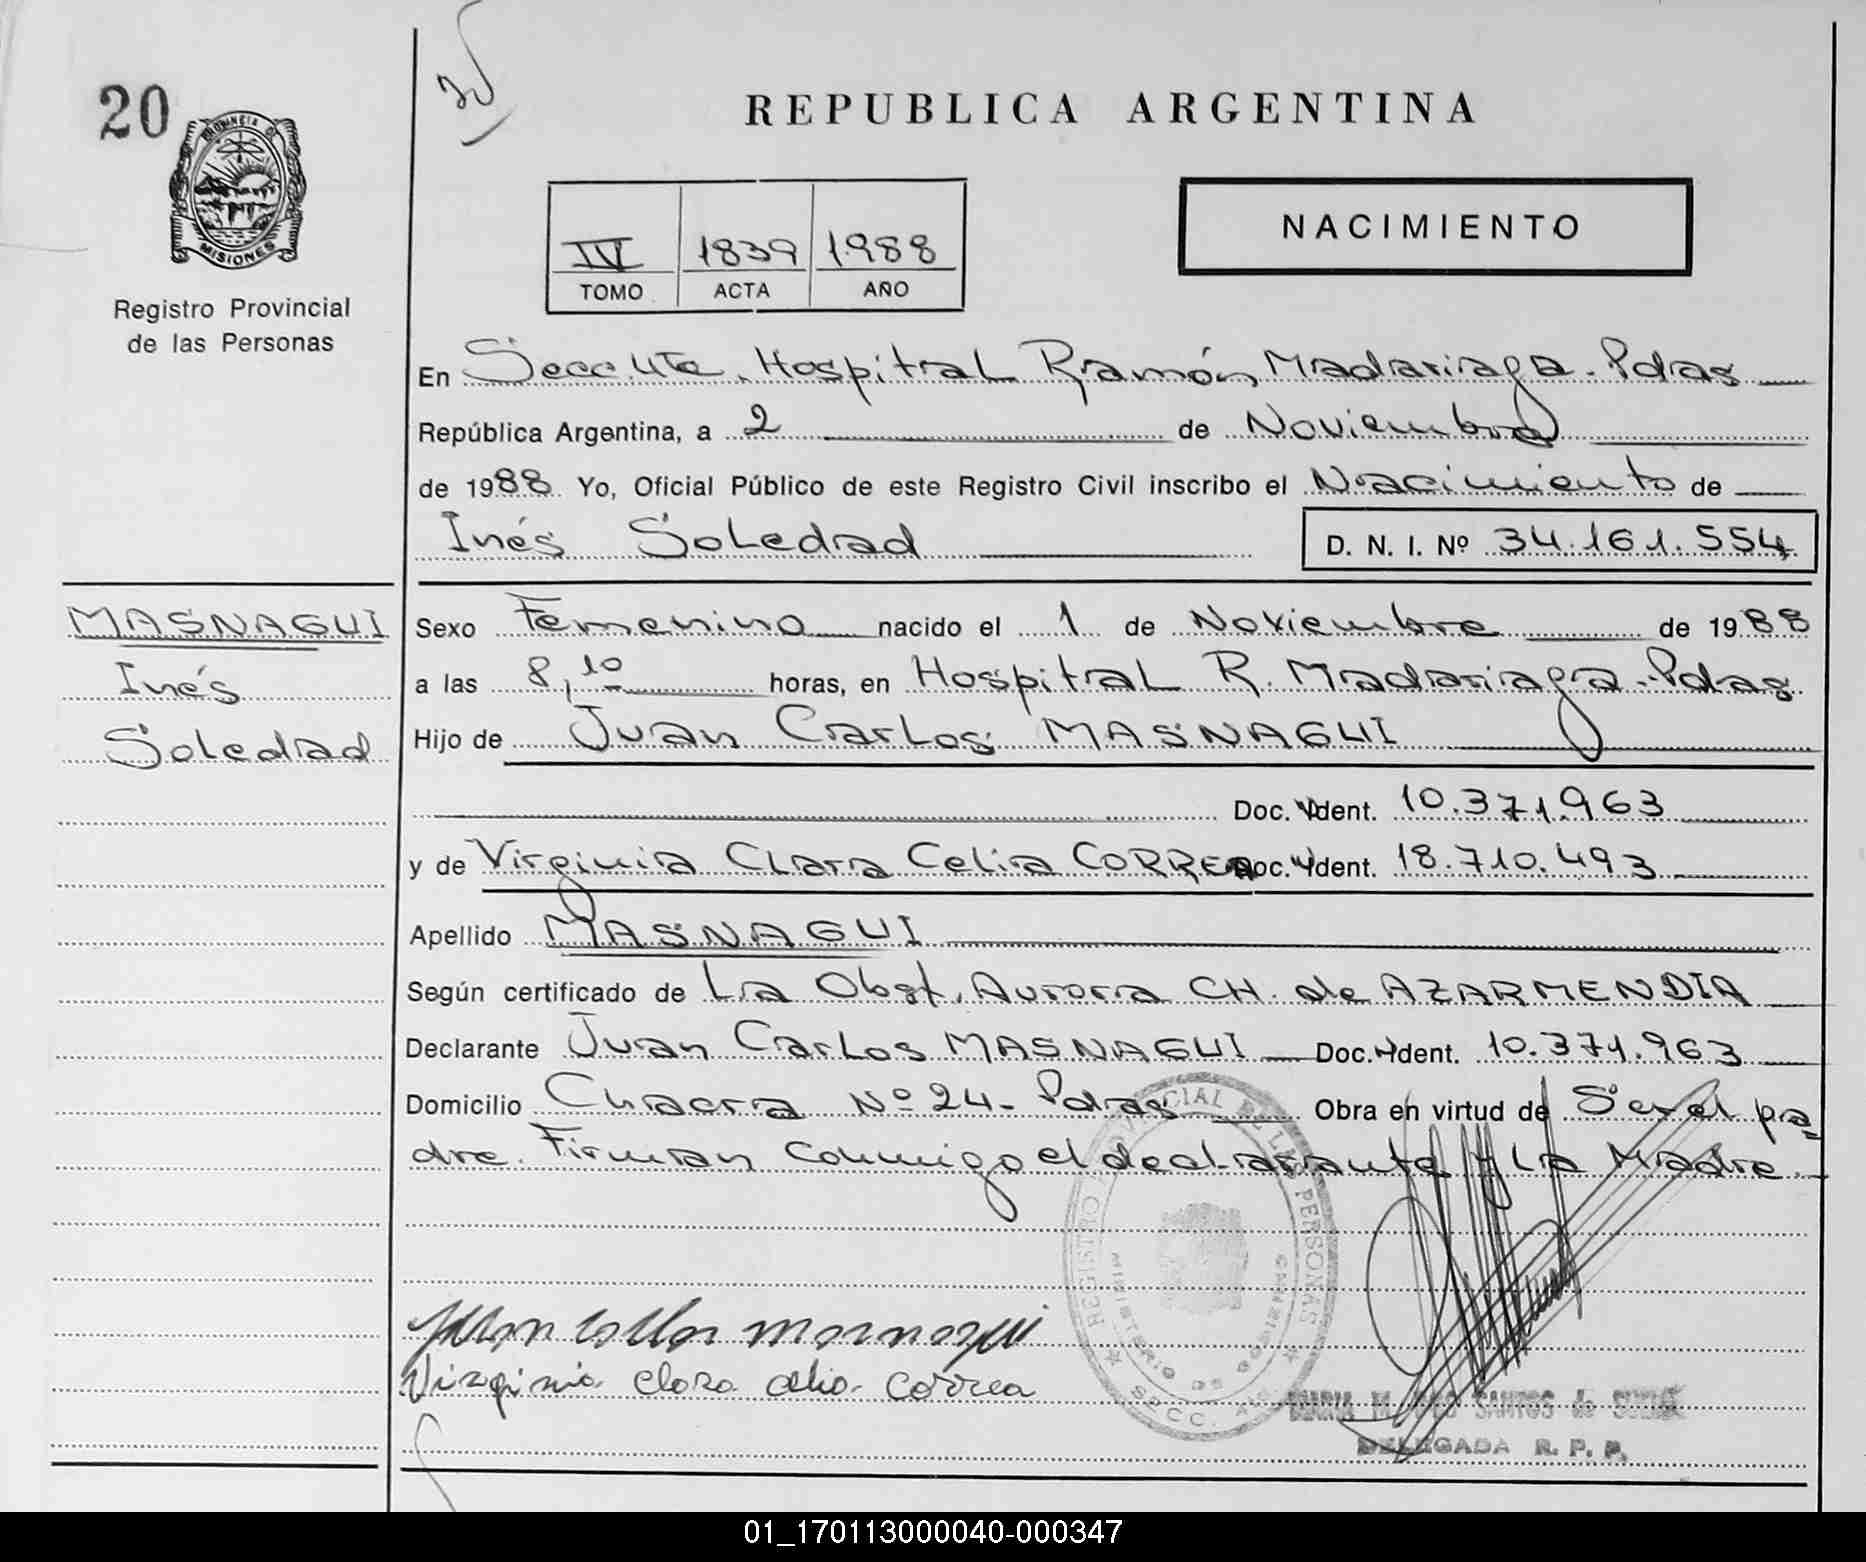 20
REPUBLICA ARGENTINA
PROVINCIA DE
MISIONES
Registro Provincial
de las Personas
IV 1839 1988
TOMO ACTA AÑO
NACIMIENTO
En Secc. 4ta. Hospital Ramón Madariaga. Pdas
República Argentina, a 2 de Noviembre
de 1988 Yo, Oficial Público de este Registro Civil inscribo el Nacimiento de
Inés Soledad
D. N. I. Nº 34.161.554
MASNAGUI
Inés
Soledad
Sexo Femenino nacido el 1 de Noviembre de 1988
a las 8,10 horas, en Hospital R. Madariaga. Pdas
Hijo de Juan Carlos MASNAGUI
Doc. Ident. 10.371.963
y de Virginia Clara Celia CORREA Doc. Ident. 18.710.493
Apellido MASNAGUI
Según certificado de La Obst. Aurora CH. de AZARMENDIA
Declarante Juan Carlos MASNAGUI Doc. Ident. 10.371.963
Domicilio Chacra Nº 24- Pdas Obra en virtud de Ser el pa-
dre. Firman conmigo el declarante y La Madre.-
REGISTRO PROVINCIAL DE LAS PERSONAS
MINISTERIO DE GOBIERNO
SECC.
Juan Carlos Masnagui
Virginia Clara Celia Correa
MARIA M. DOS SANTOS de
DELEGADA R. P. P.
01_170113000040-000347